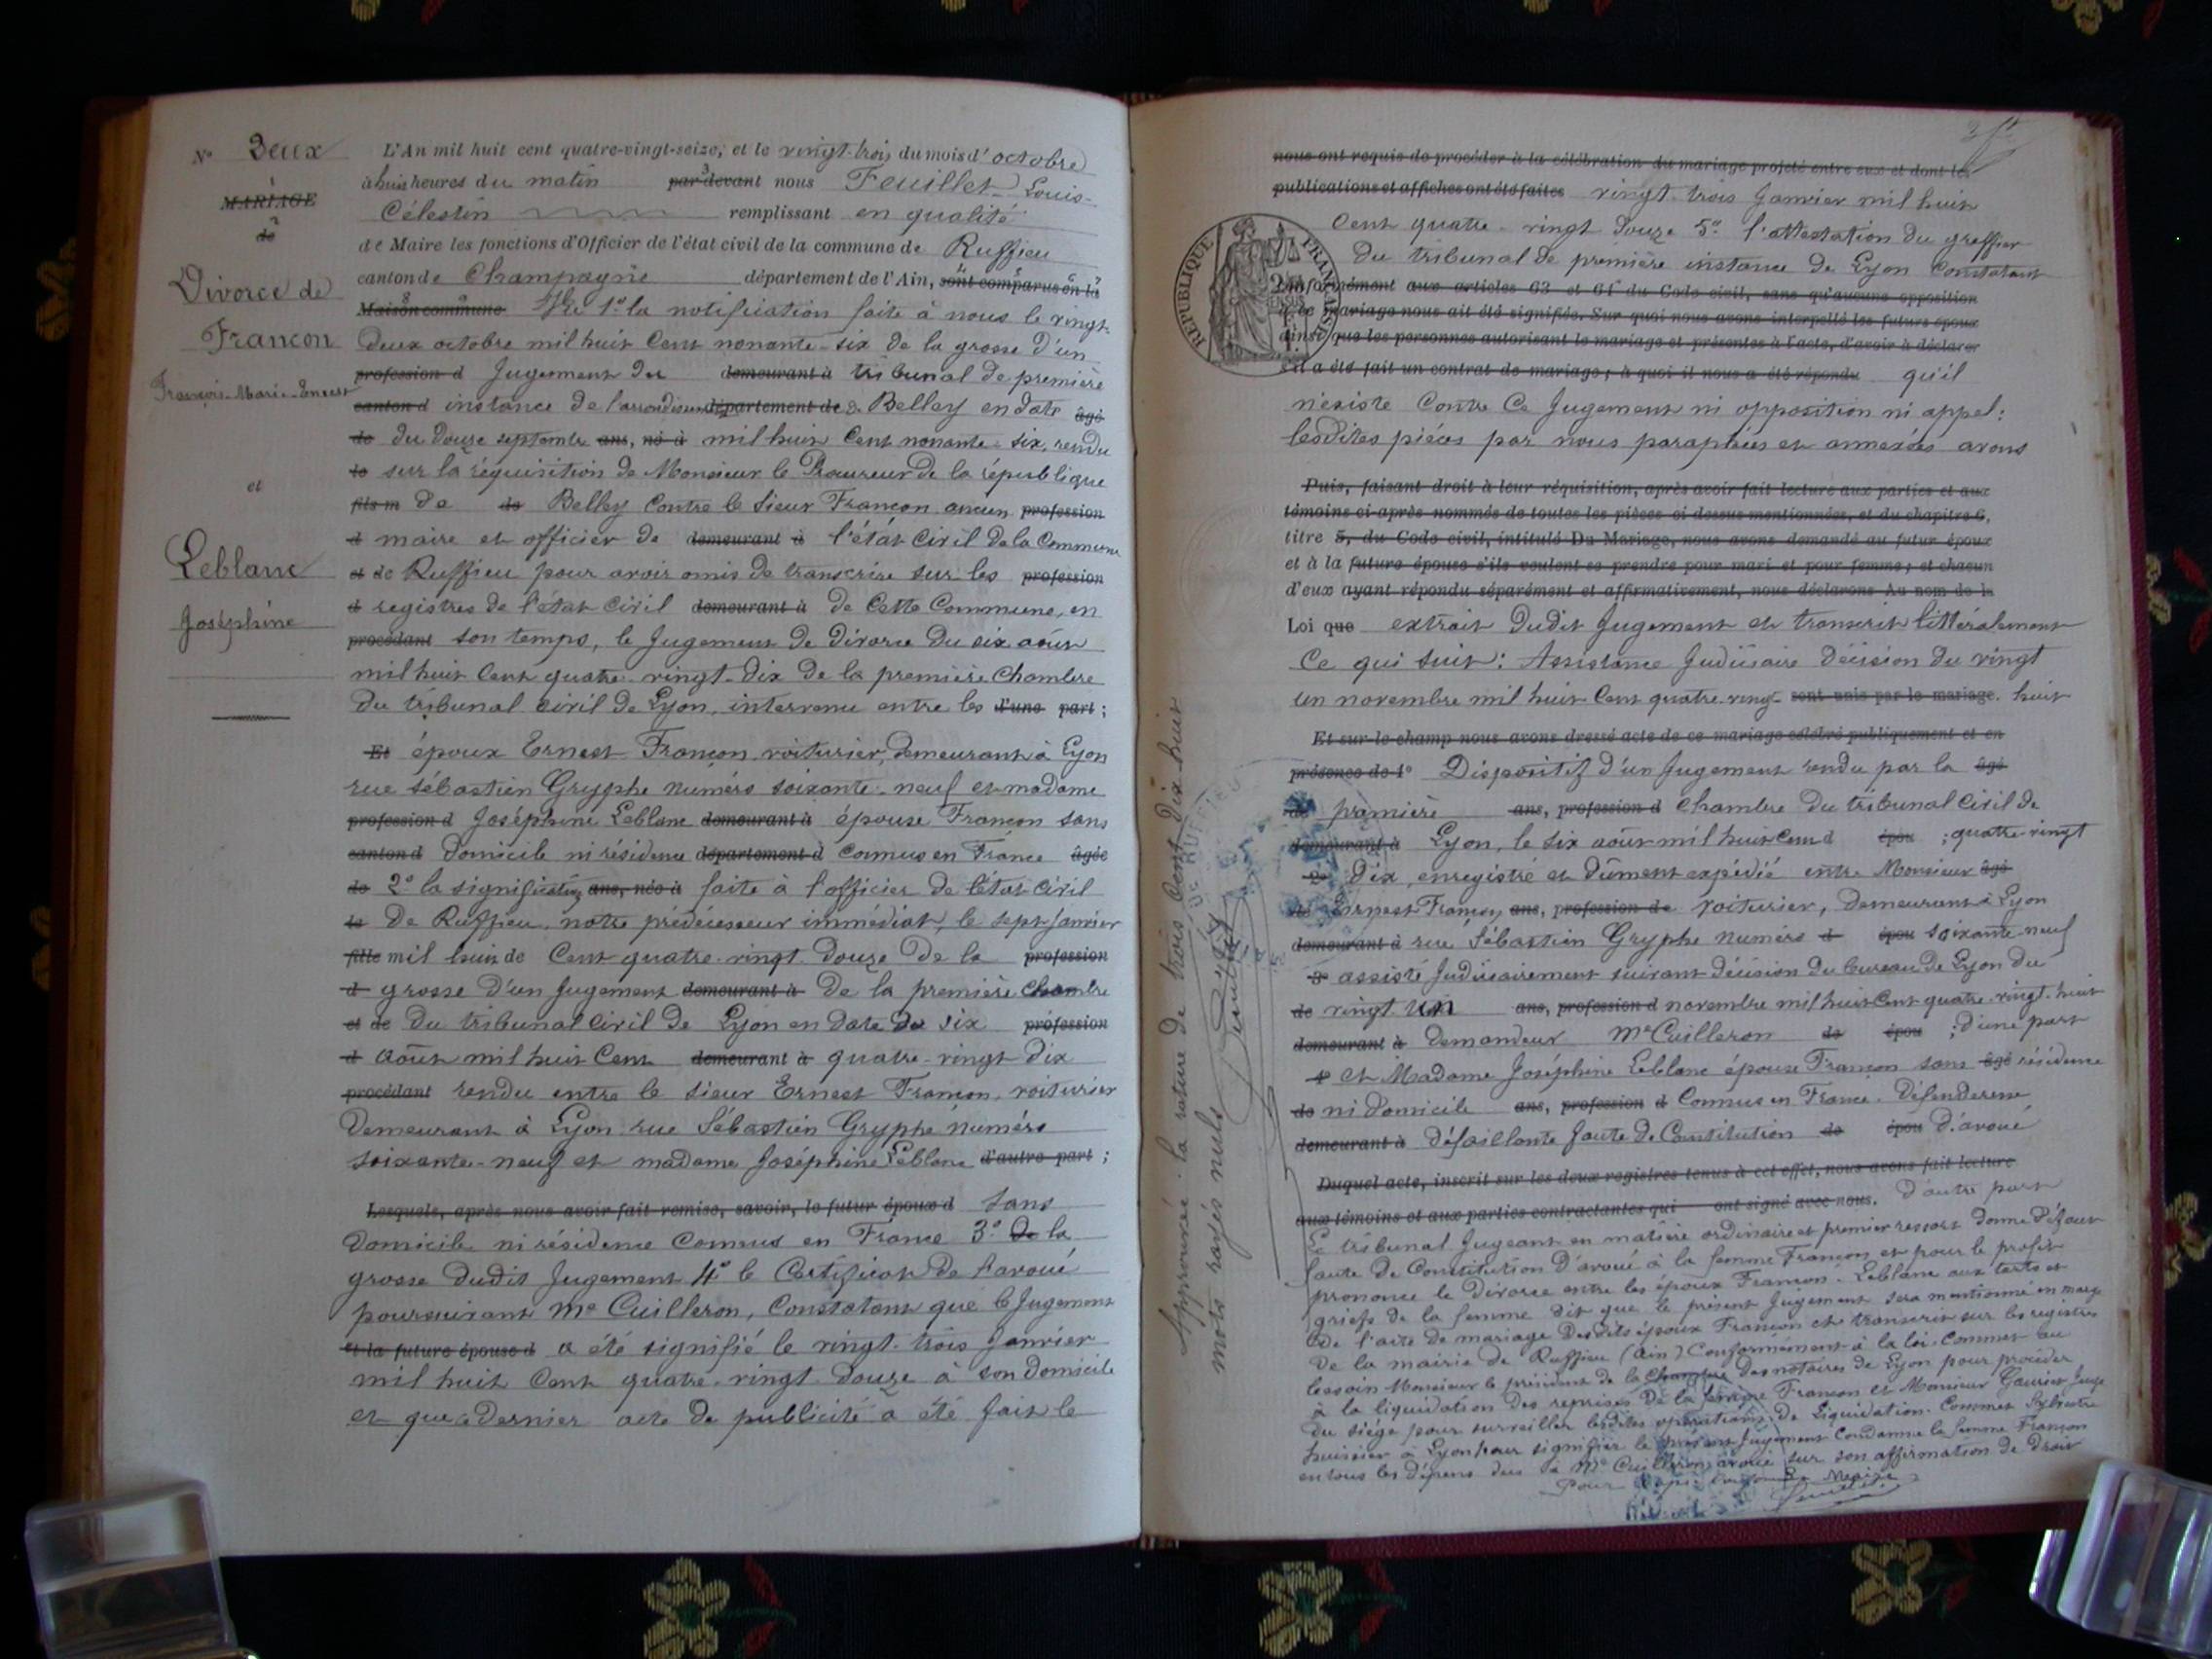 N° Deux
MARIAGE
de
Divorce de
Françon
François-Marie-Ernest
et
Leblanc
Joséphine
L'An mil huit cent quatre-vingt-seize, et le vingt-trois du mois d'octobre
à huit heures du matin par devant nous Feuillet Louis-
Célestin remplissant en qualité
de Maire les fonctions d'Officier de l'état civil de la commune de Ruffieu
canton de Champagne département de l'Ain, sont comparus en la
Maison commune. Vu 1° la notification faite à nous le vingt-
deux octobre mil huit cent nonante-six de la grosse d'un
profession d Jugement du demeurant à tribunal de première
canton d instance de l'arrondissement département de de Belley en date âgé
de du douze septembre ans, né à mil huit cent nonante-six, rendu
le sur la réquisition de Monsieur le Procureur de la république
fils m de de Belley contre le sieur Françon ancien profession
d maire et officier de demeurant à l'état civil de la Commune
et de de Ruffieu pour avoir omis de transcrire sur les profession
d registres de l'état civil demeurant à de cette Commune, en
procédant son temps, le Jugement de divorce du six août
mil huit cent quatre-vingt-dix de la première Chambre
du tribunal civil de Lyon, intervenu entre les d'une part ;
Et époux Ernest Françon voiturier, demeurant à Lyon
rue Sébastien Gryphe numéro soixante-neuf et madame
profession d Joséphine Leblanc demeurant à épouse Françon sans
canton d domicile ni résidence département d connus en France âgée
de 2° la signification ans, née à faite à l'officier de l'état civil
le de Ruffieu, notre prédécesseur immédiat, le sept Janvier
fille mil huit de cent quatre-vingt douze de la profession
d grosse d'un Jugement demeurant à de la première chambre
et de du tribunal civil de Lyon en date du six profession
d août mil huit cent demeurant à quatre-vingt dix
procédant rendu entre le sieur Ernest Françon, voiturier
demeurant à Lyon rue Sébastien Gryphe numéro
soixante-neuf et madame Joséphine Leblanc d'autre part ;
Lesquels, après nous avoir fait remise, savoir, le futur époux d sans
domicile ni résidence connus en France 3° de la
grosse dudit Jugement 4° le Certificat de l'avoué
poursuivant Me Cuilleron, constatant que le Jugement
et la future épouse d a été signifié le vingt-trois Janvier
mil huit cent quatre-vingt-douze à son domicile
et que ce dernier acte de publicité a été fait le
nous ont requis de procéder à la célébration du mariage projeté entre eux et dont les
publications et affiches ont été faites vingt-trois Janvier mil huit
cent quatre-vingt douze 5° l'attestation du greffier
du tribunal de première instance de Lyon constatant
REPUBLIQUE FRANÇAISE
conformément aux articles 63 et 64 du Code civil, sans qu'aucune opposition
à ce mariage nous ait été signifiée. Sur quoi nous avons interpellé les futurs époux
ainsi que les personnes autorisant le mariage et présentes à l'acte, d'avoir à déclarer
s'il a été fait un contrat de mariage ; à quoi il nous a été répondu qu'il
n'existe contre ce Jugement ni opposition ni appel :
lesdites pièces par nous paraphées et annexées avons
Puis, faisant droit à leur réquisition, après avoir fait lecture aux parties et aux
témoins ci-après nommés de toutes les pièces ci dessus mentionnées, et du chapitre 6,
titre 5, du Code civil, intitulé Du Mariage, nous avons demandé au futur époux
et à la future épouse s'ils veulent se prendre pour mari et pour femme ; et chacun
d'eux ayant répondu séparément et affirmativement, nous déclarons Au nom de la
Loi que extrait dudit Jugement et transcrit littéralement
ce qui suit : Assistance Judiciaire décision du vingt
un novembre mil huit cent quatre-vingt- sont unis par le mariage. huit
Et sur-le-champ nous avons dressé acte de ce mariage célébré publiquement et en
présence de 1° Dispositif d'un Jugement rendu par la âgé
de première ans, profession d chambre du tribunal civil de
demeurant à Lyon, le six août mil huit cent d épou ; quatre-vingt
2° dix, enregistré et dûment expédié entre Monsieur âgé
de Ernest Françon ans, profession de voiturier, demeurant à Lyon
demeurant à rue Sébastien Gryphe numéro d épou soixante-neuf
3° assisté Judiciairement suivant décision du bureau de Lyon du
de vingt un ans, profession d novembre mil huit cent quatre-vingt-huit
demeurant à demandeur Me Cuilleron de épou ; d'une part
4° et Madame Joséphine Leblanc épouse Françon sans âgé résidence
de ni domicile ans, profession d connus en France. Défenderesse
demeurant à défaillante faute de Constitution de épou d'avoué
Duquel acte, inscrit sur les deux registres tenus à cet effet, nous avons fait lecture
aux témoins et aux parties contractantes qui ont signé avec nous. d'autre part
Le tribunal Jugeant en matière ordinaire et premier ressort donne défaut
faute de Constitution d'avoué à la femme Françon et pour le profit
prononce le divorce entre les époux Françon-Leblanc aux torts et
griefs de la femme dit que le présent Jugement sera mentionné en marge
de l'acte de mariage desdits époux Françon et transcrit sur les registres
de la mairie de Ruffieu (Ain) Conformément à la loi. Commet au
besoin Monsieur le président de la Chambre des notaires de Lyon pour procéder
à la liquidation des reprises de la femme Françon et Monsieur Juge
du siège pour surveiller lesdites opérations de Liquidation. Commet Sylvestre
huissier à Lyon pour signifier le présent Jugement Condamne la femme Françon
en tous les dépens dus à Me Cuilleron avoué sur son affirmation de droit
Pour copie conforme Le Maire
Feuillet
Approuvée la rature de trois cent dix huit
mots rayés nuls
Feuillet